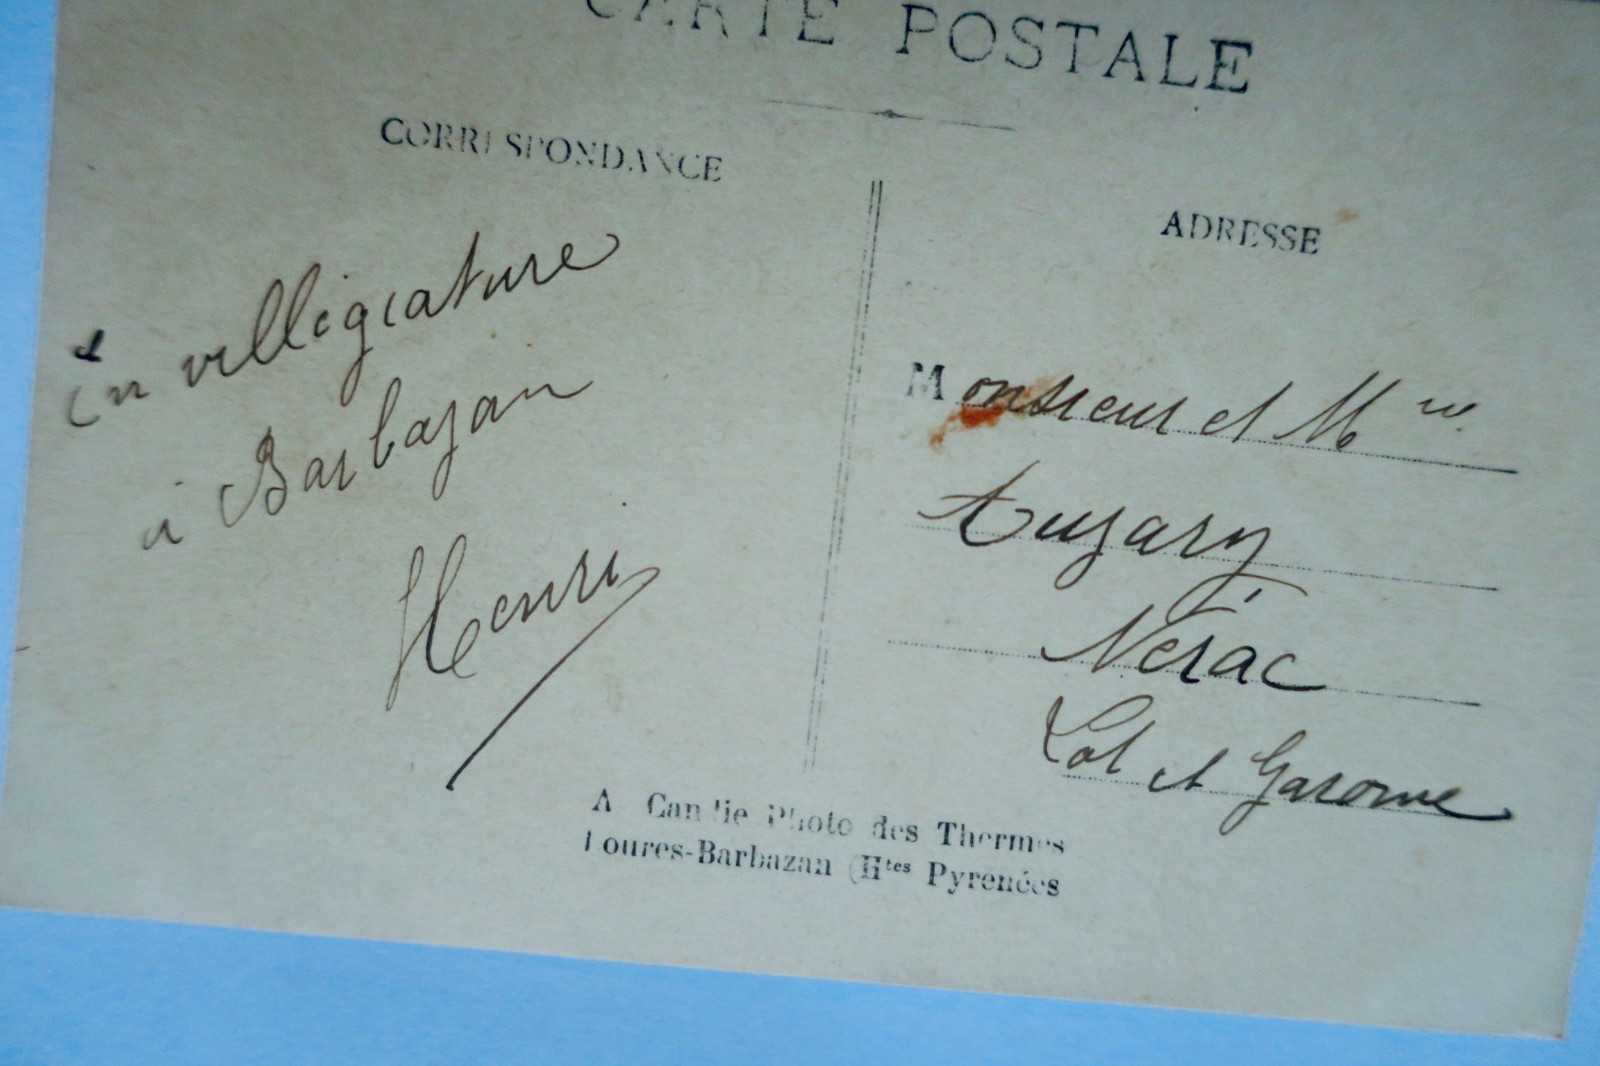 CARTE POSTALE
CORRESPONDANCE
En villégiature
à Barbazan
Henri
ADRESSE
Monsieur et Mme
Nérac
Lot et Garonne
A Candie Photo des Thermes
Loures-Barbazan (Htes Pyrenées